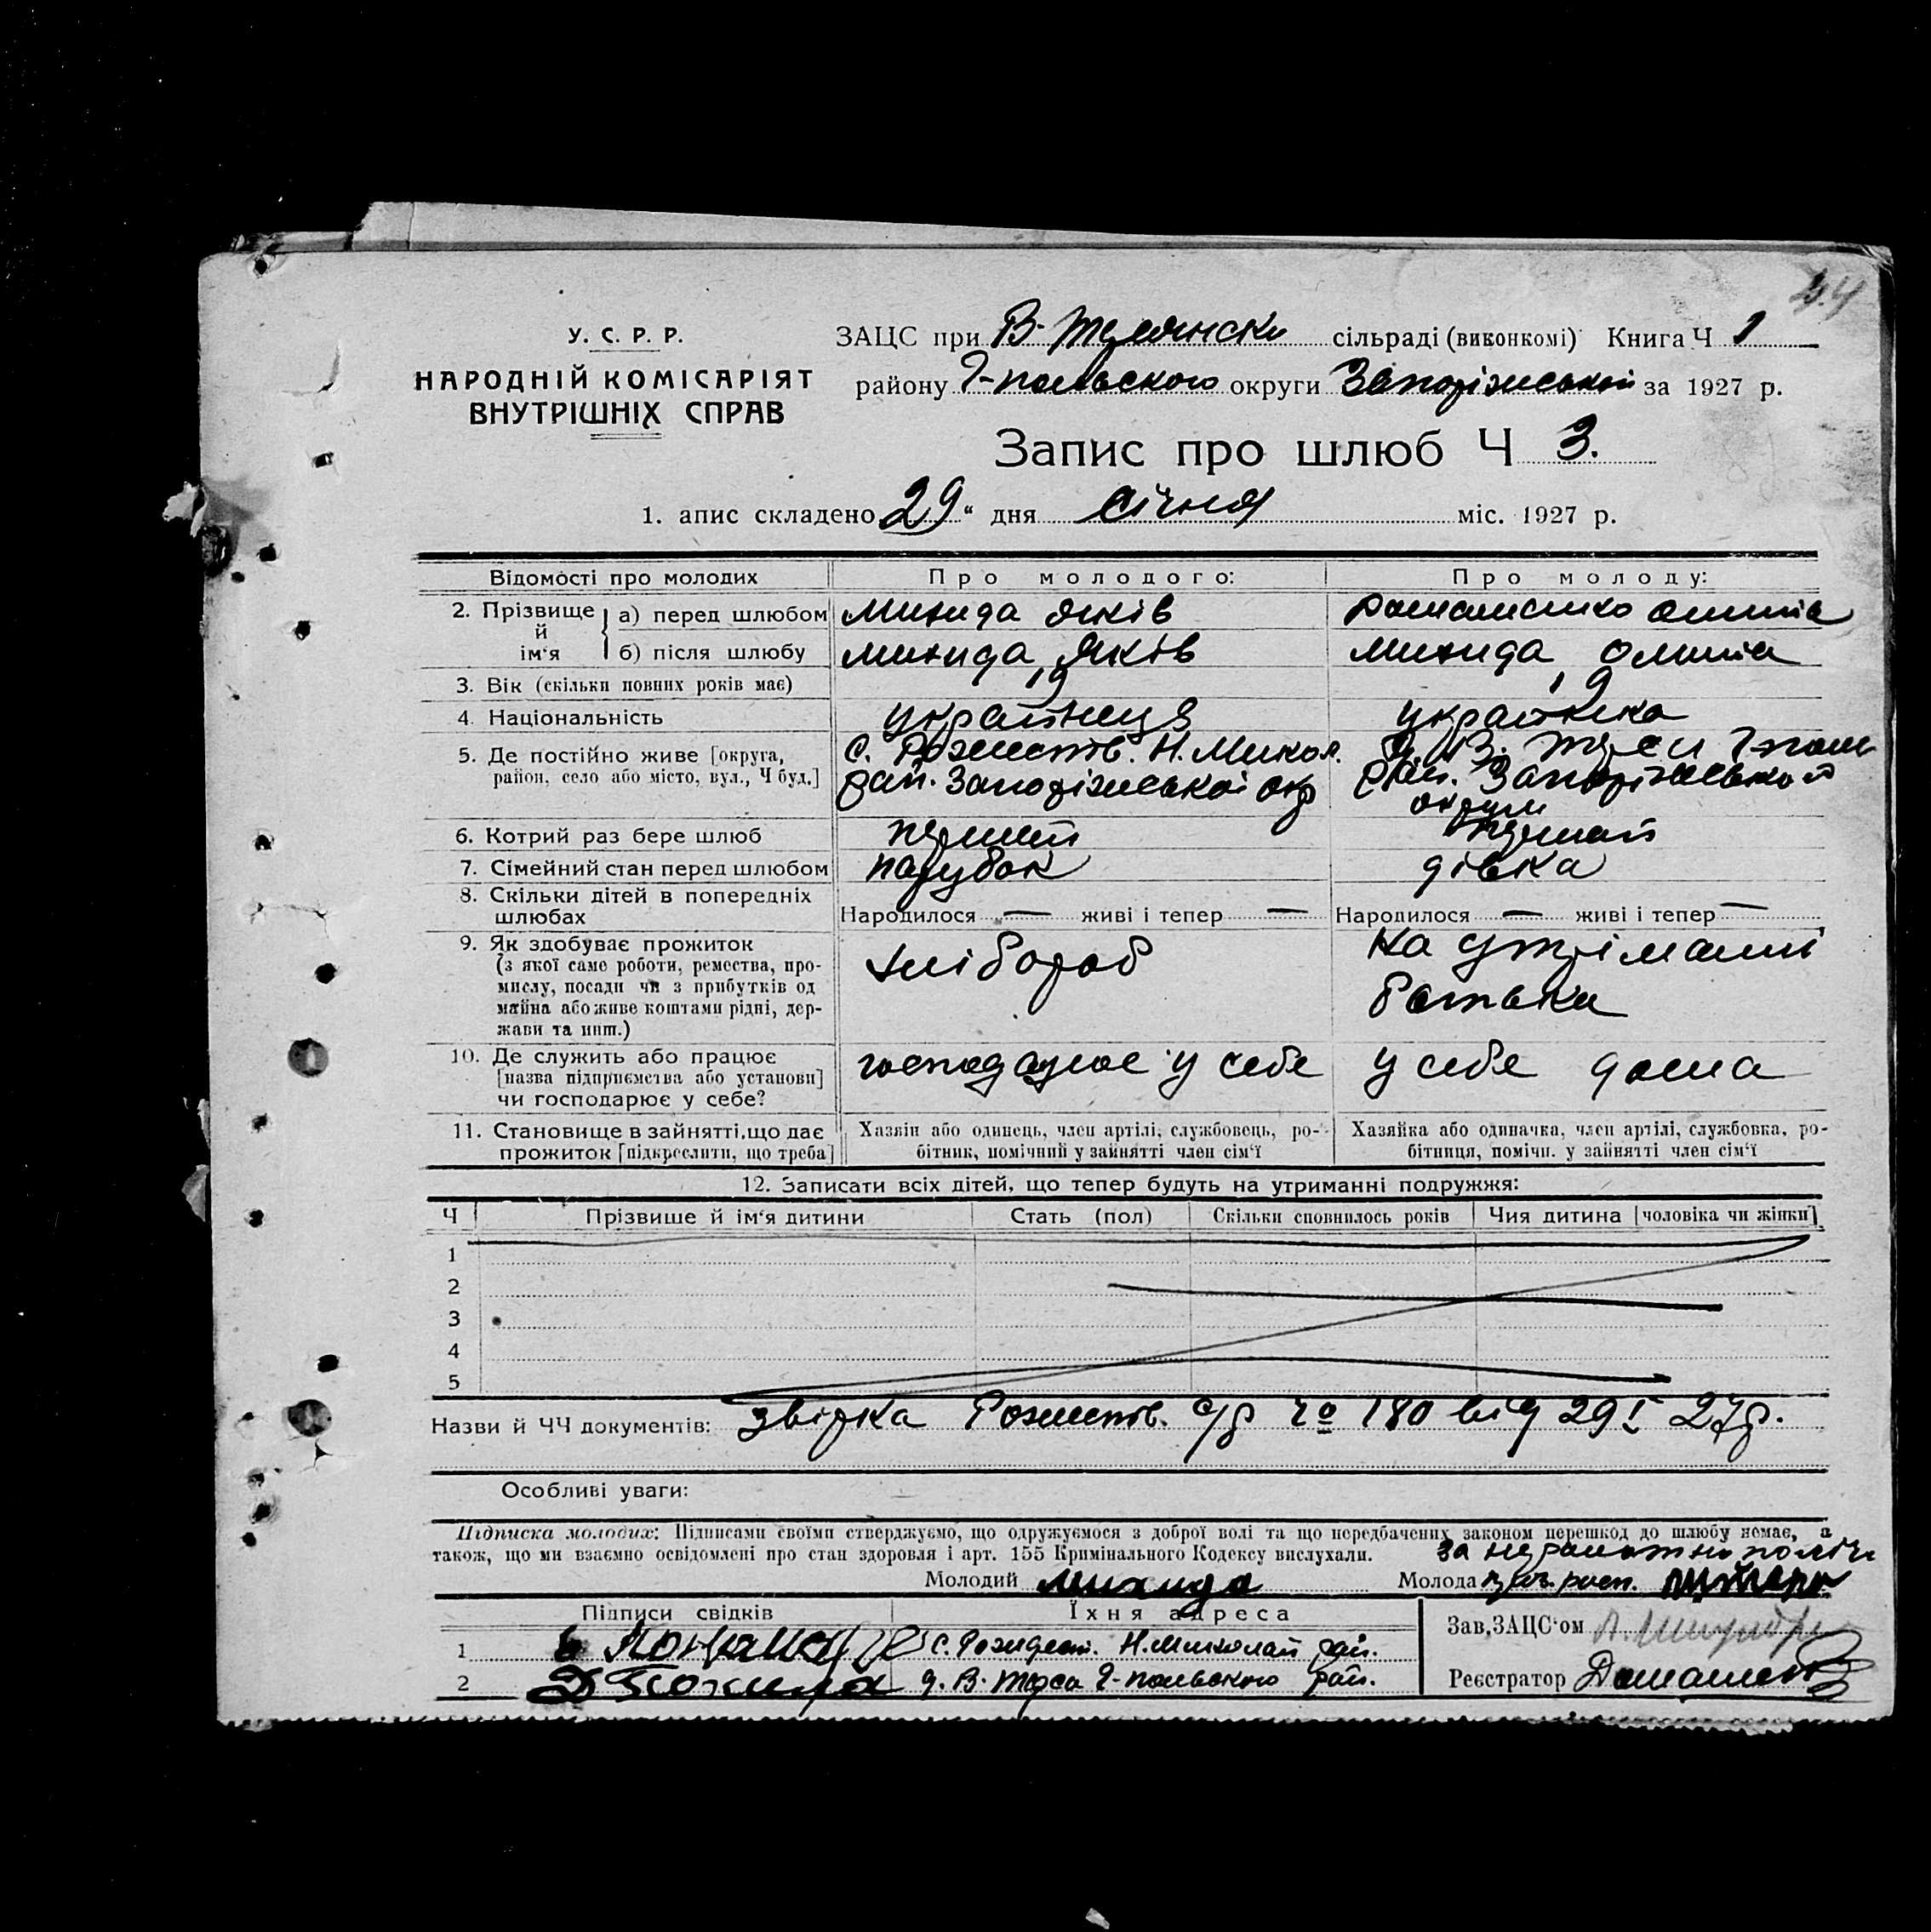 У. С. Р. Р.
НАРОДНІЙ КОМІСАРІЯТ
ВНУТРІШНІХ СПРАВ
ЗАЦС при В- сільраді (виконкомі) Книга Ч 1
району Г-польского округи Запоріжської за 1927 р.
Запис про шлюб Ч 3.
1. апис складено 29 " дня січня міс. 1927 р.
Відомості про молодих Про молодого: Про молоду:
2. Прізвище й ім'я а) перед шлюбом Михида Яків
б) після шлюбу Михида Яків Михида
3. Вік (скільки повних років має) 19 19
4. Національність українець українка
5. Де постійно живе [округа, район, село або місто, вул., Ч буд.] с. Рождеств. Н. Микол. В. Терси Гпол
рай. Запоріжської окр рай. Запоріжської
округи
6. Котрий раз бере шлюб перший перший
7. Сімейний стан перед шлюбом парубок дівка
8. Скільки дітей в попередніх шлюбах Народилося — живі і тепер — Народилося — живі і тепер —
9. Як здобуває прожиток хлібороб на утріманні
(з якої саме роботи, ремества, про-
мислу, посади чи з прибутків од батька
майна або живе коштами рідні, дер-
жави та инш.)
10. Де служить або працює господарює у себе у себе дома
[назва підприємства або установи]
чи господарює у себе?
11. Становище в зайнятті, що дає Хазяїн або одинець, член артілі, службовець, ро- Хазяйка або одиначка, член артілі, службовка, ро-
прожиток [підкреслити, що треба] бітник, помічний у зайнятті член сім'ї бітниця, помічн. у зайнятті член сім'ї
12. Записати всіх дітей, що тепер будуть на утриманні подружжя:
Ч Прізвище й ім'я дитини Стать (пол) Скільки сповнилось років Чия дитина [чоловіка чи жінки]
1
2
3
4
5
Назви й ЧЧ документів: звірка Рождеств. с/р 180 від 29 I 27р.
Особливі уваги:
Підписка молодих: Підписами своїми стверджуємо, що одружуємося з доброї волі та що передбачених законом перешкод до шлюбу немає, а
також, що ми взаємно освідомлені про стан здоровля і арт. 155 Кримінального Кодексу вислухали. за неграмотно
Молодий Михида Молода росп.
Підписи свідків Їхня адреса
Зав. ЗАЦС'ом
1 с. Рождест. Н. Миколай рай.
2 В. Терса Г-польского рай.
Реєстратор